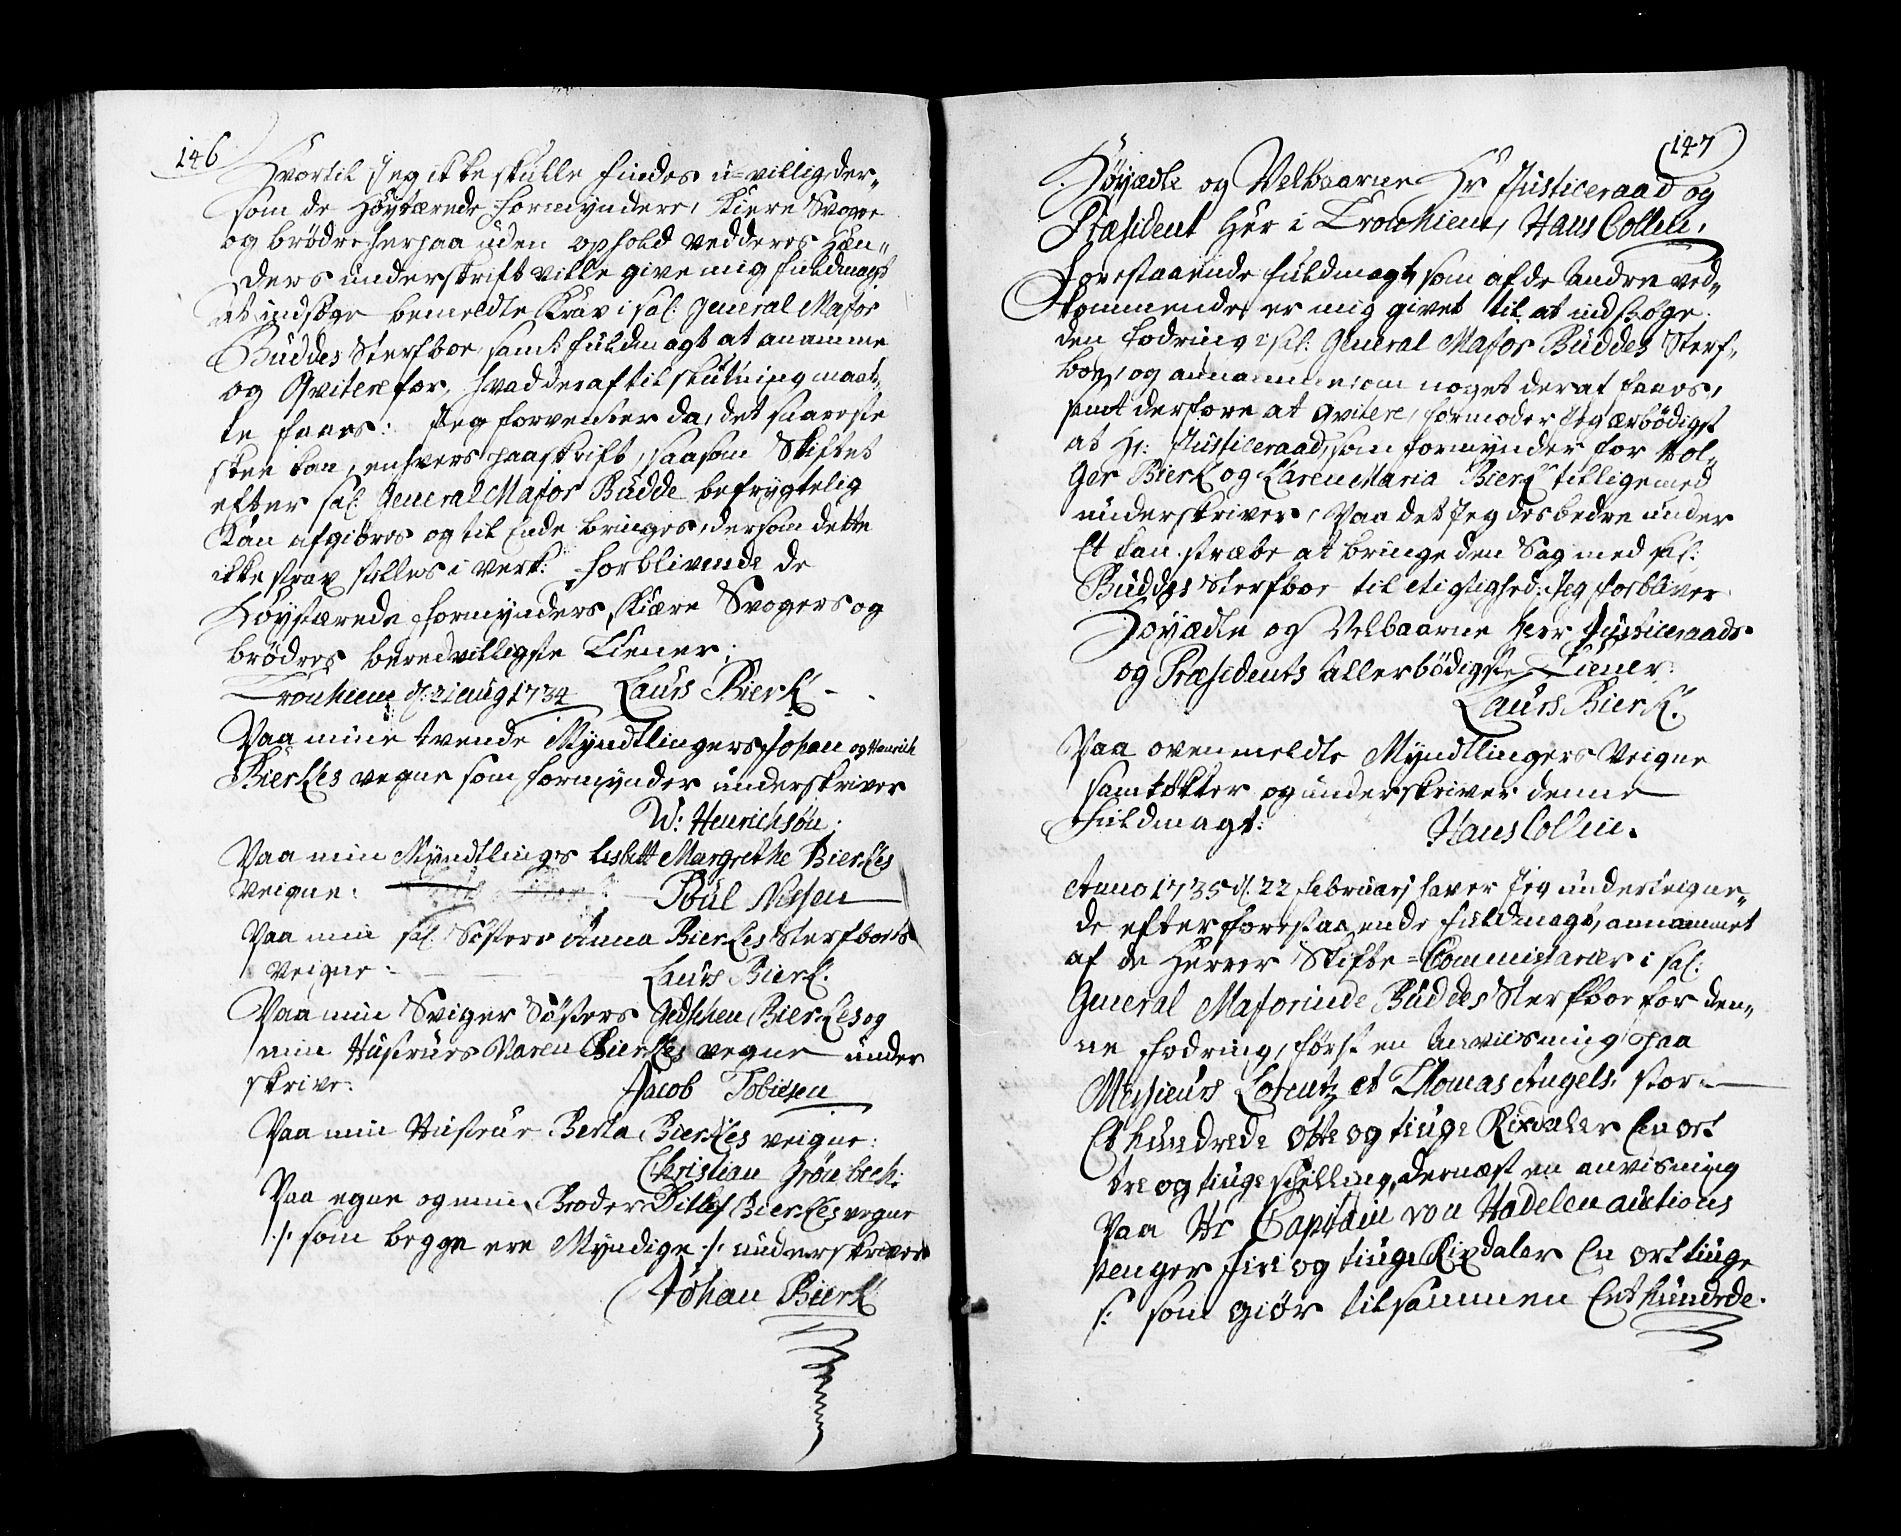 146
Hvortil Jeg ikke skulle findes u-villig der„
som de Høytærede Formyndere, Kiere Svogre
og brødre herpaa uden ophold vedderes Hæn„
ders underskrift ville give mig fuldmagt
at indsøge bemeldte Krav i sal: General Major
Buddes Sterfboe samt fuldmagt at anamme
og Qvitere for, hvad deraf til slutning maat„
te faaes: Jeg forventer da, det snareste
skee kan, enhvers paaskrift, saasom Skiftet
efter sal: General Major Budde befrygtelig
kan afgiöres og til Ende bringes, dersom dette
ikke strax stilles i verk: forblivende de
Høystærede formynders, Kiære Svogers og
brödres beredvilligste Tiener,
Tronhiem d: 21 aug 1734 Laurs Bierk
Paa mine tvende Myndtlingers Johan og Henrich
Bierkes vegne som formynder underskriver
W: Henrichsön.
Paa min Myndtlings Lisbett Margrethe Bierkes
Veigne: Poul Nissen
Paa min sal: Søsters Anna Bierkes Sterfboes
Veigne: Laurs Bierk.
Paa min Sviger Söster Bierkes og
min Hustrues Maren Bierkes vegne under
skriver: Jacob Tobiesen
Paa min Hustrue Berta Bierkes veigne:
Christian Grönbech:
Paa egne og min Broder Ditlef Bierkes vegne
/: som begge ere Myndige :/ underskriver
Johan Bierk
147
Höyædle og Velbaarne Hr Justiceraad og
Præsident her i Tronhiem, Hans Collin,
Forestaaende fuldmagt som af de Andre ved„
kommende er mig givet til at indsöge
den fodring i sal: General Major Buddes Sterf„
boe, og annamme om noget deraf faaes,
samt derfore at qvitere, formoder Jeg ærbödigst
at Hr: Justiceraad, som formynder for Hol„
ger Bierk og Karen Maria Bierk tilligemed
underskriver, Paa det Jeg des bedre under
Et kan stræbe at bringe den Sag med sal:
Buddes Sterfboe til Jeg forbliver
Höyædle og Velbaarne Herr Justiceraads
og Præsidents allerbödigste Tiener:
Laurs Bierk.
Paa ovenmeldte Myndtlingers Veigne
samtökker og underskriver denne
Fuldmagt: Hans Collin.
Anno 1735 d. 22 Februarj haver Jeg underteigne„
de efter forestaaende fuldmagt, annammet
af de Herrer Skifte-Commissarier i sal:
General Majorinde Buddes Sterfboe for den„
ne fodring, först en Anviisning paa
Messieurs Lorentz et Thomas Angels, stor
Et hundrede Otte og tiuge Rixdaler En ort
tre og tiuge skilling, dernæst en anvisning
Paa Hr Capitain von Hadelen auctions
penger fire og tiuge Rixdaler En ort tiuge
/: som giör tilsammen Et hundrede